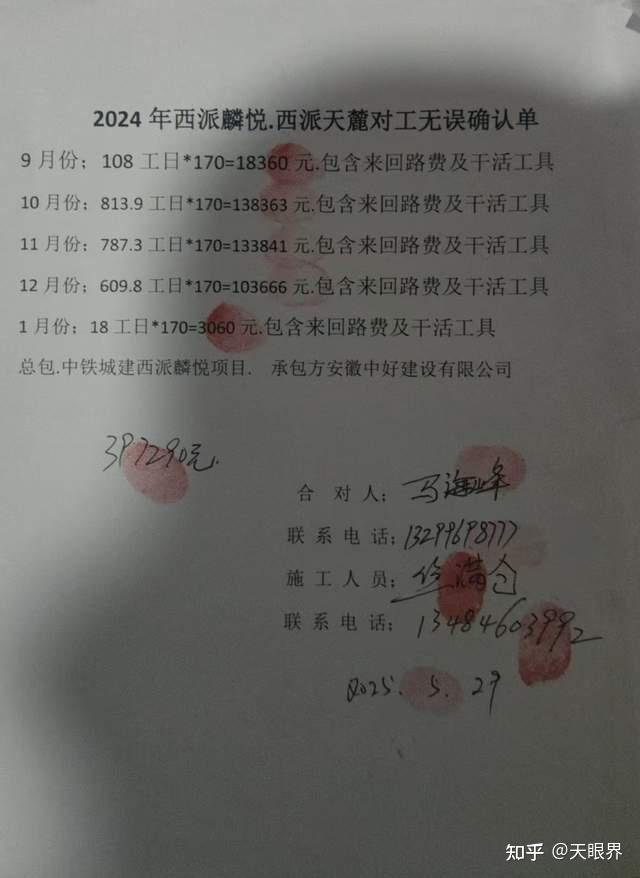 2024 年西派麟悦.西派天麓对工无误确认单
9 月份；108 工日*170=18360 元.包含来回路费及干活工具
10 月份；813.9 工日*170=138363 元.包含来回路费及干活工具
11 月份；787.3 工日*170=133841 元.包含来回路费及干活工具
12 月份；609.8 工日*170=103666 元.包含来回路费及干活工具
1 月份；18 工日*170=3060 元.包含来回路费及干活工具
总包.中铁城建西派麟悦项目. 承包方安徽中好建设有限公司
397290元.
合 对 人； 马海峰
联 系 电 话；13299698777
施 工 人 员； 满仓
联 系 电 话； 13484603992
2025. 5. 29
知乎 @天眼界